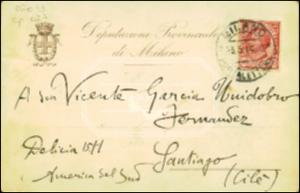 Deputazione Provinciale
di Milano
MILANO
A sr Vicente García Huidobro
Fernandez
Delicia 1511
Santiago
America del Sud
(Cile)